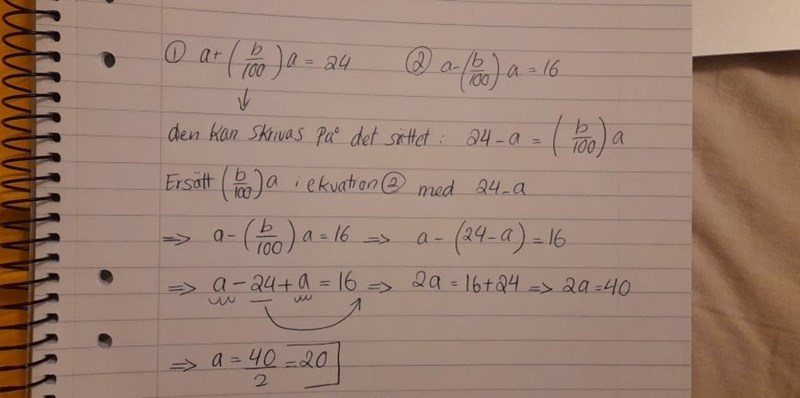 ① a+(b/100)a = 24 ② a-(b/100)a = 16
↓
den kan skrivas på det sättet: 24-a = (b/100)a
Ersätt (b/100)a i ekvation ② med 24-a
=> a-(b/100)a = 16 => a-(24-a) = 16
=> a-24+a = 16 => 2a = 16+24 => 2a = 40
=> a = 40/2 = 20